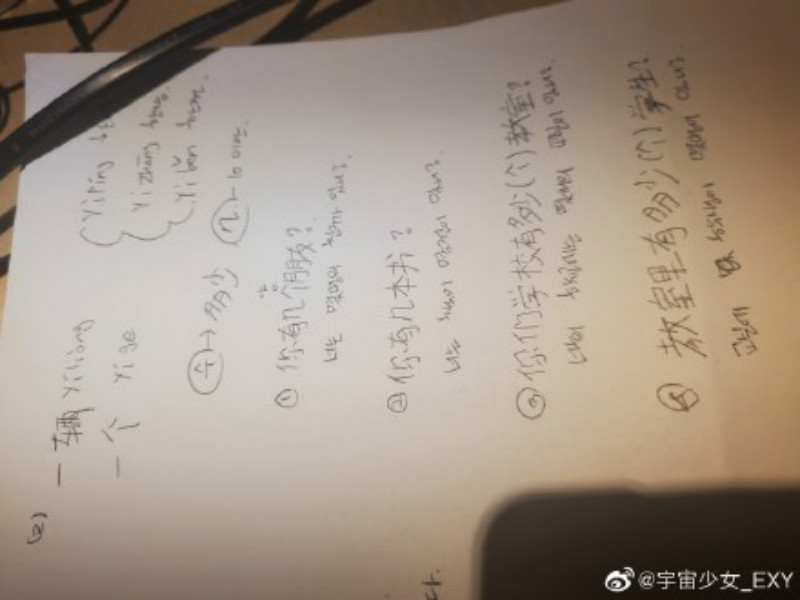 一辆 yiliàng
yiping
一个 yi ge
yizhāng 한장.
yi běn 한권.
수 → 多少
几 → 10 이하
① 你有几个朋友?
너는 몇명의 친구가 있니?
② 你有几本书?
너는 책이 몇권이 있니?
③ 你们学校有多少(个)教室?
너희 학교에는 몇개의 교실이 있니?
教室里有多少(个)学生?
교실에 학생이 몇명이 있니?
다.
@宇宙少女_EXY